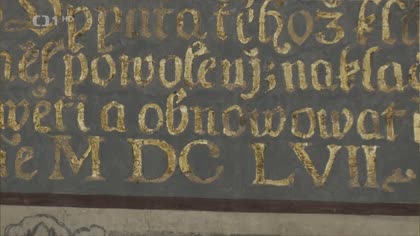 Č1 HD
Wyputa téhož kla
něl powolenj; naklad
wěti a obnowowat
ne M DC LVII.